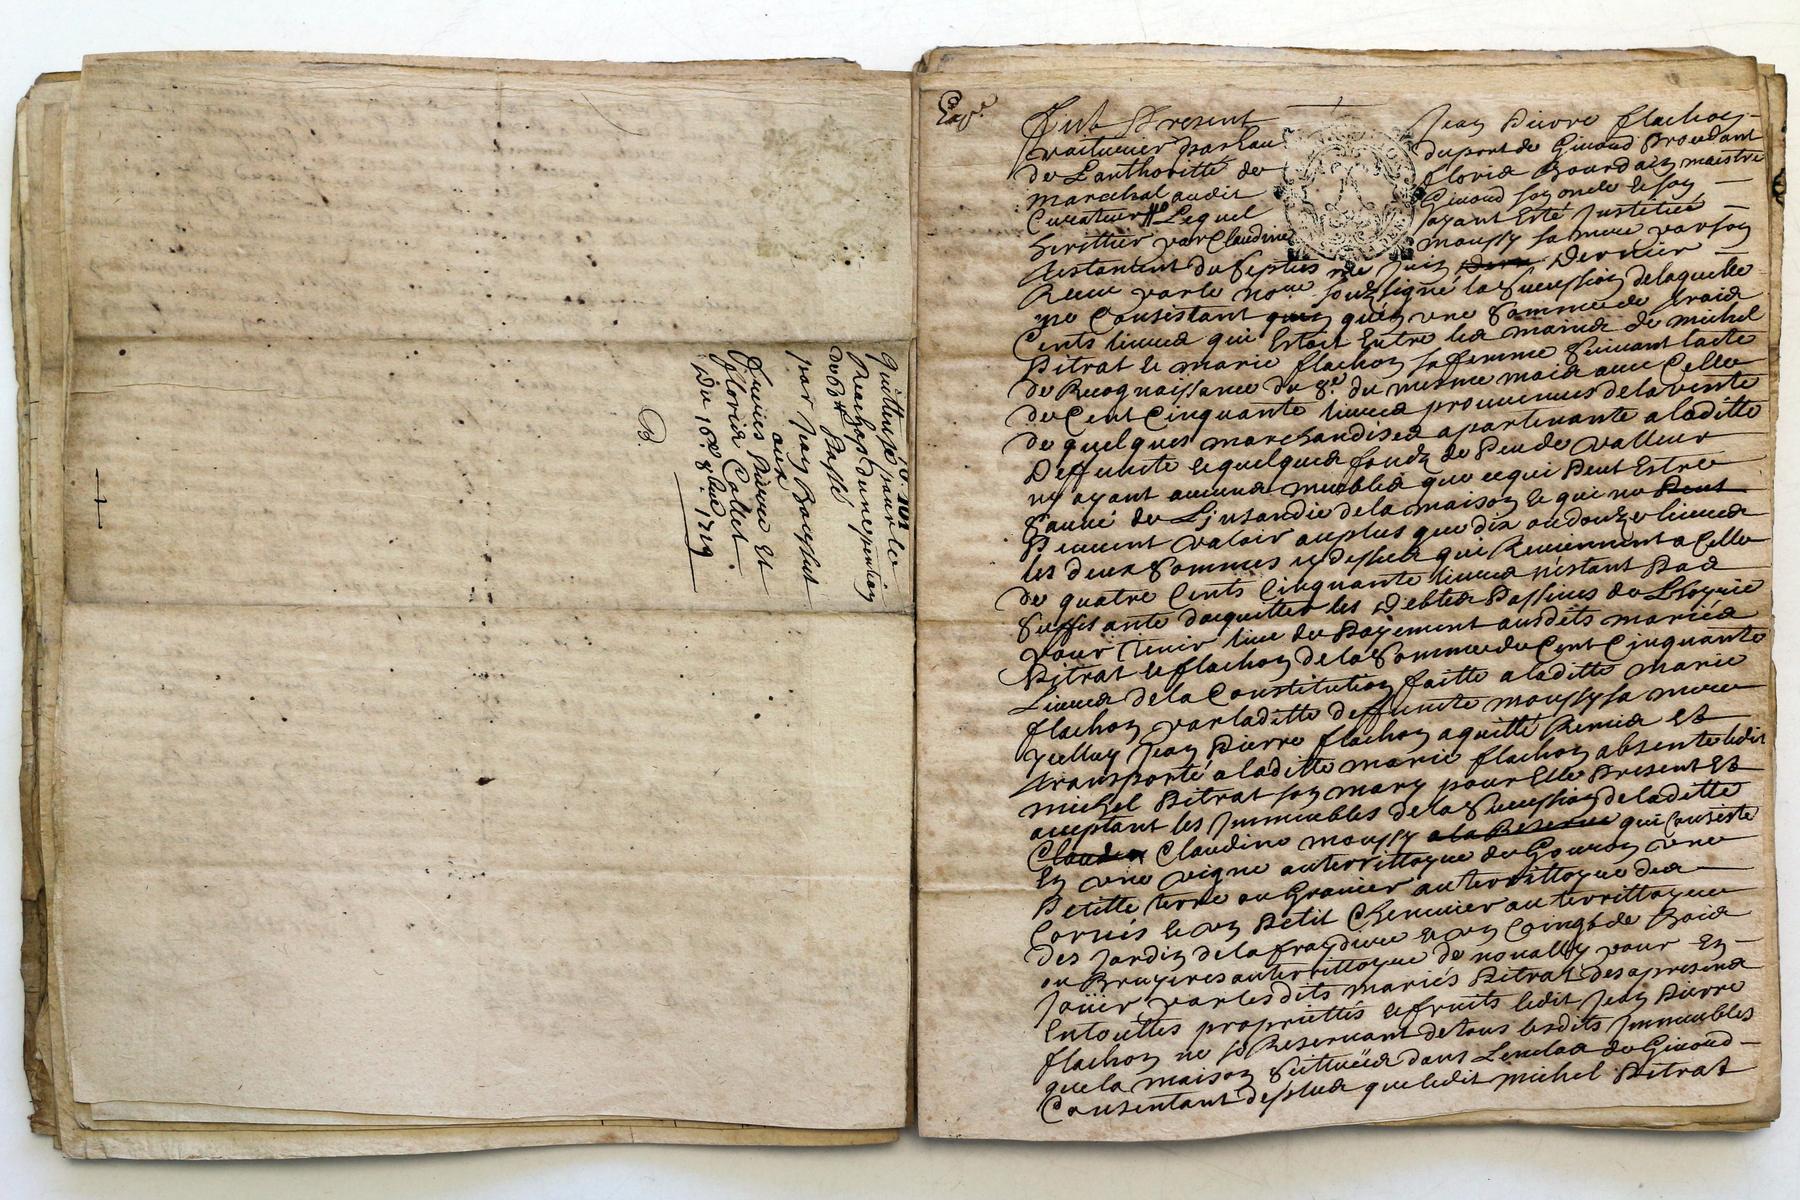 101
quittance pour le
Rachapt d'une pention
par Jean
aux
Pierre Et
Floris Collet.
Du 16e 8bre 1719
B.
Exp.e
Fut Present Jean Pierre flachon
voiturier par eau du port de Givord Procedant
de Lauthoritté de Floris Bourdain maistre
marechal audit Givord son oncle et son
Curateur Lequel ayant Esté Justitué
heritier par Claudine moussy sa mere par son
Testament du Septie me Juin Dernier
Receu par le no.re soubzsigné la Succession de laquelle
ne Consistant qu'en une Somme de Trois
Cents livres qui Estoit Entre les mains de michel
Pitrat et marie flachon sa femme Suivant lacte
de Recognaissance du 8e du mesme mois avec Celle
de Cent Cinquante livres provenues de la vente
de quelques marchandises apartenante a laditte
Deffunte et quelques fondz de Peu de valleur
ny ayant aucuns meubles que ce qui Peut Estre
Sauvé de L'jnsandie de la maison et qui ne Peut
Peuvent valoir au plus que dix ou douze livres
les deux Sommes cy dessus qui Reviennent a Celle
de quatre Cents Cinquante livres n'estant Pas
Suffisante daquitter les Debtes Passives de L'hoyrie
pour Tenir lieu de Payement ausdits mariés
Pitrat et flachon de la Somme de Cent Cinquante
Livres de la Constitution faitte a laditte marie
flachon par laditte deffunte moussy sa mere
jcelluy Jean Pierre flachon a quitté Remis et
transporté a laditte marie flachon absente ledit
michel Pitrat son mary pour Elle Present Et
aceptant les Jmmeubles de la Succession de laditte
Claudine moussy a la Reserve qui Consiste
En une vigne au territtoyre du Gouron une
Petitte terre ou Gravier au territtoyre des
Cornés et un Petit Chenevier au territtoyre
des Jardin de la fraydiere et un Coingt de Bois
ou Bruyeres au territtoyre de pour En
Joüir par lesdits mariés Pitrat des a present
En touttes proprietés et fruits ledit Jean Pierre
flachon ne se Reservant de tous lesdits Jmmeubles
que la maison Scittuëe dans L'enclos de Givord
Consentant de plus que ledit michel Pitrat